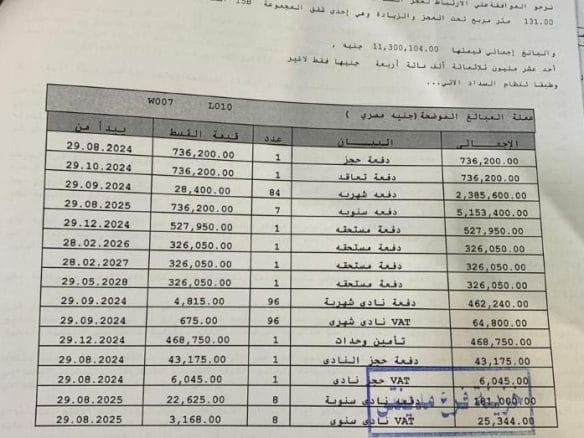 نرجو الموافقة علي الارتباط لحجز
131.00 متر مربع تحت العجز والزيادة وهي إحدى شقق المجموعة 15B
والبالغ إجمالي قيمتها 11,300,104.00 جنيه .
أحد عشر مليون ثلاثمائة ألف مائة أربعة جنيها فقط لاغير
وطبقا لنظام السداد الاتي...
عملة المبالغ الموضحة(جنيه مصري ) L010 W007
الإجمالي البيان عدد قيمة القسط يبدأ من
736,200.00 دفعة حجز 1 736,200.00 29.08.2024
736,200.00 دفعة تعاقد 1 736,200.00 29.10.2024
2,385,600.00 دفعه شهريه 84 28,400.00 29.09.2024
5,153,400.00 دفعه سنويه 7 736,200.00 29.08.2025
527,950.00 دفعة مستحقه 1 527,950.00 29.12.2024
326,050.00 دفعة مستحقه 1 326,050.00 28.02.2026
326,050.00 دفعة مستحقه 1 326,050.00 28.02.2027
326,050.00 دفعة مستحقه 1 326,050.00 29.05.2028
462,240.00 دفعة نادى شهرية 96 4,815.00 29.09.2024
64,800.00 VAT نادى شهرى 96 675.00 29.09.2024
468,750.00 تأمين وحدات 1 468,750.00 29.12.2024
43,175.00 دفعة حجز النادى 1 43,175.00 29.08.2024
6,045.00 VAT حجز نادى 1 6,045.00 29.08.2024
181,000.00 دفعه نادى سنوية 8 22,625.00 29.08.2025
25,344.00 VAT نادى سنوى 8 3,168.00 29.08.2025
خزينة فرع مدينتي